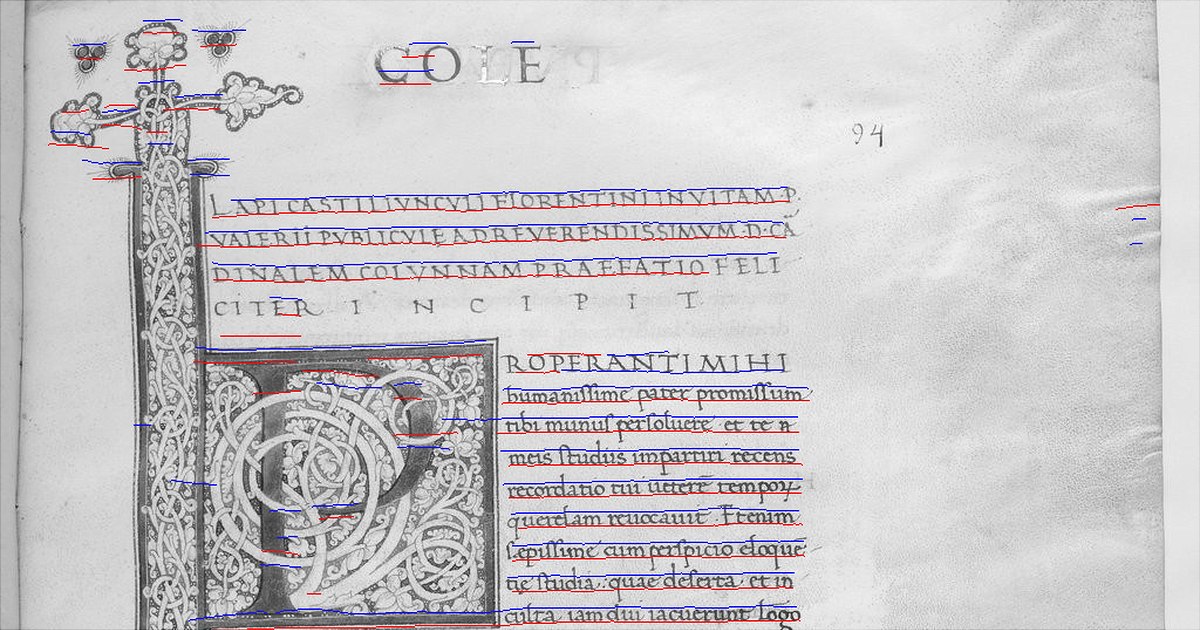 COLE
94
LAPI CASTELLIVNCVLI FLORENTINI IN VITAM · P ·
VALERII PVBLICVLE AD REVERENDISSIMVM · D · CĀ
DINALEM COLVNNAM PRAEFATIO FELI
CITER I N C I P I T
PROPERANTI MIHI
humanissime pater promissum
tibi munus persoluere et te a
meis studiis impartiri recens
recordatio tui ueterē tempoꝝ
querelam reuocauit Etenim
sępissime cum perspicio eloquē
tię studia: quae deserta et in
culta iam diu iacuerunt longo